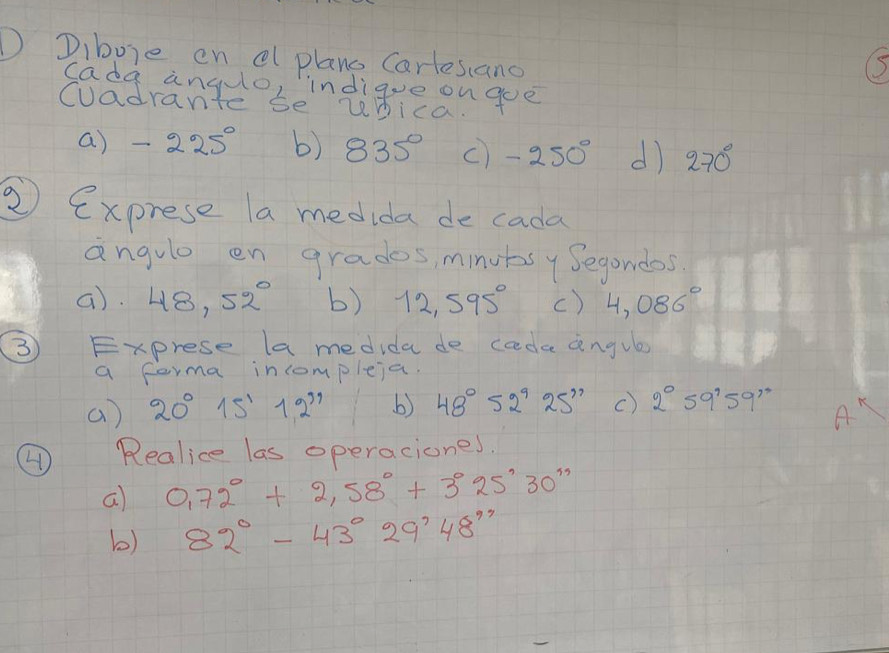 1) Dibuje en el plano Cartesiano
cada ángulo, indique en que
Cuadrante se ubica.
a) - 225° b) 835° c) -250° d) 270°
2 Exprese la medida de cada
ángulo en grados, minutos y Segundos.
a). 48,52° b) 12,595° c) 4,086°
3 Exprese la medida de cada ángulo
a forma incompleja.
a) 20° 15' 12" b) 48° 52' 25" c) 2° 59' 59"
4 Realice las operaciones.
a) 0,72° + 2,58° + 3° 25' 30"
b) 82° - 43° 29' 48"
5
A